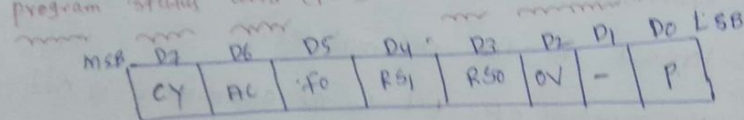 program status
MSB D7 D6 D5 D4 D3 D2 D1 D0 LSB
CY AC F0 RS1 RS0 OV - P